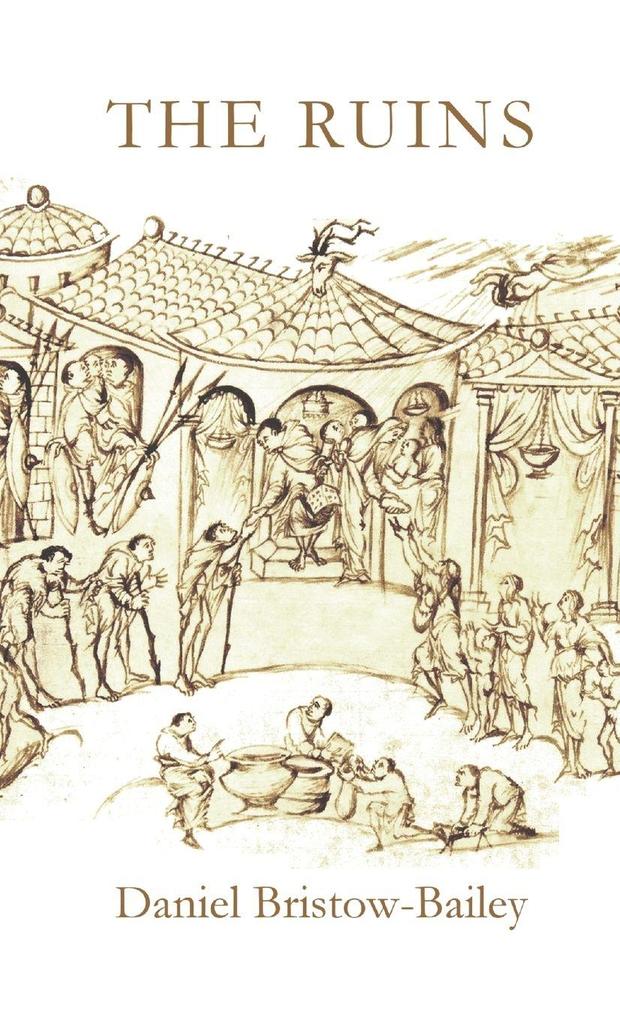 THE RUINS
Daniel Bristow-Bailey